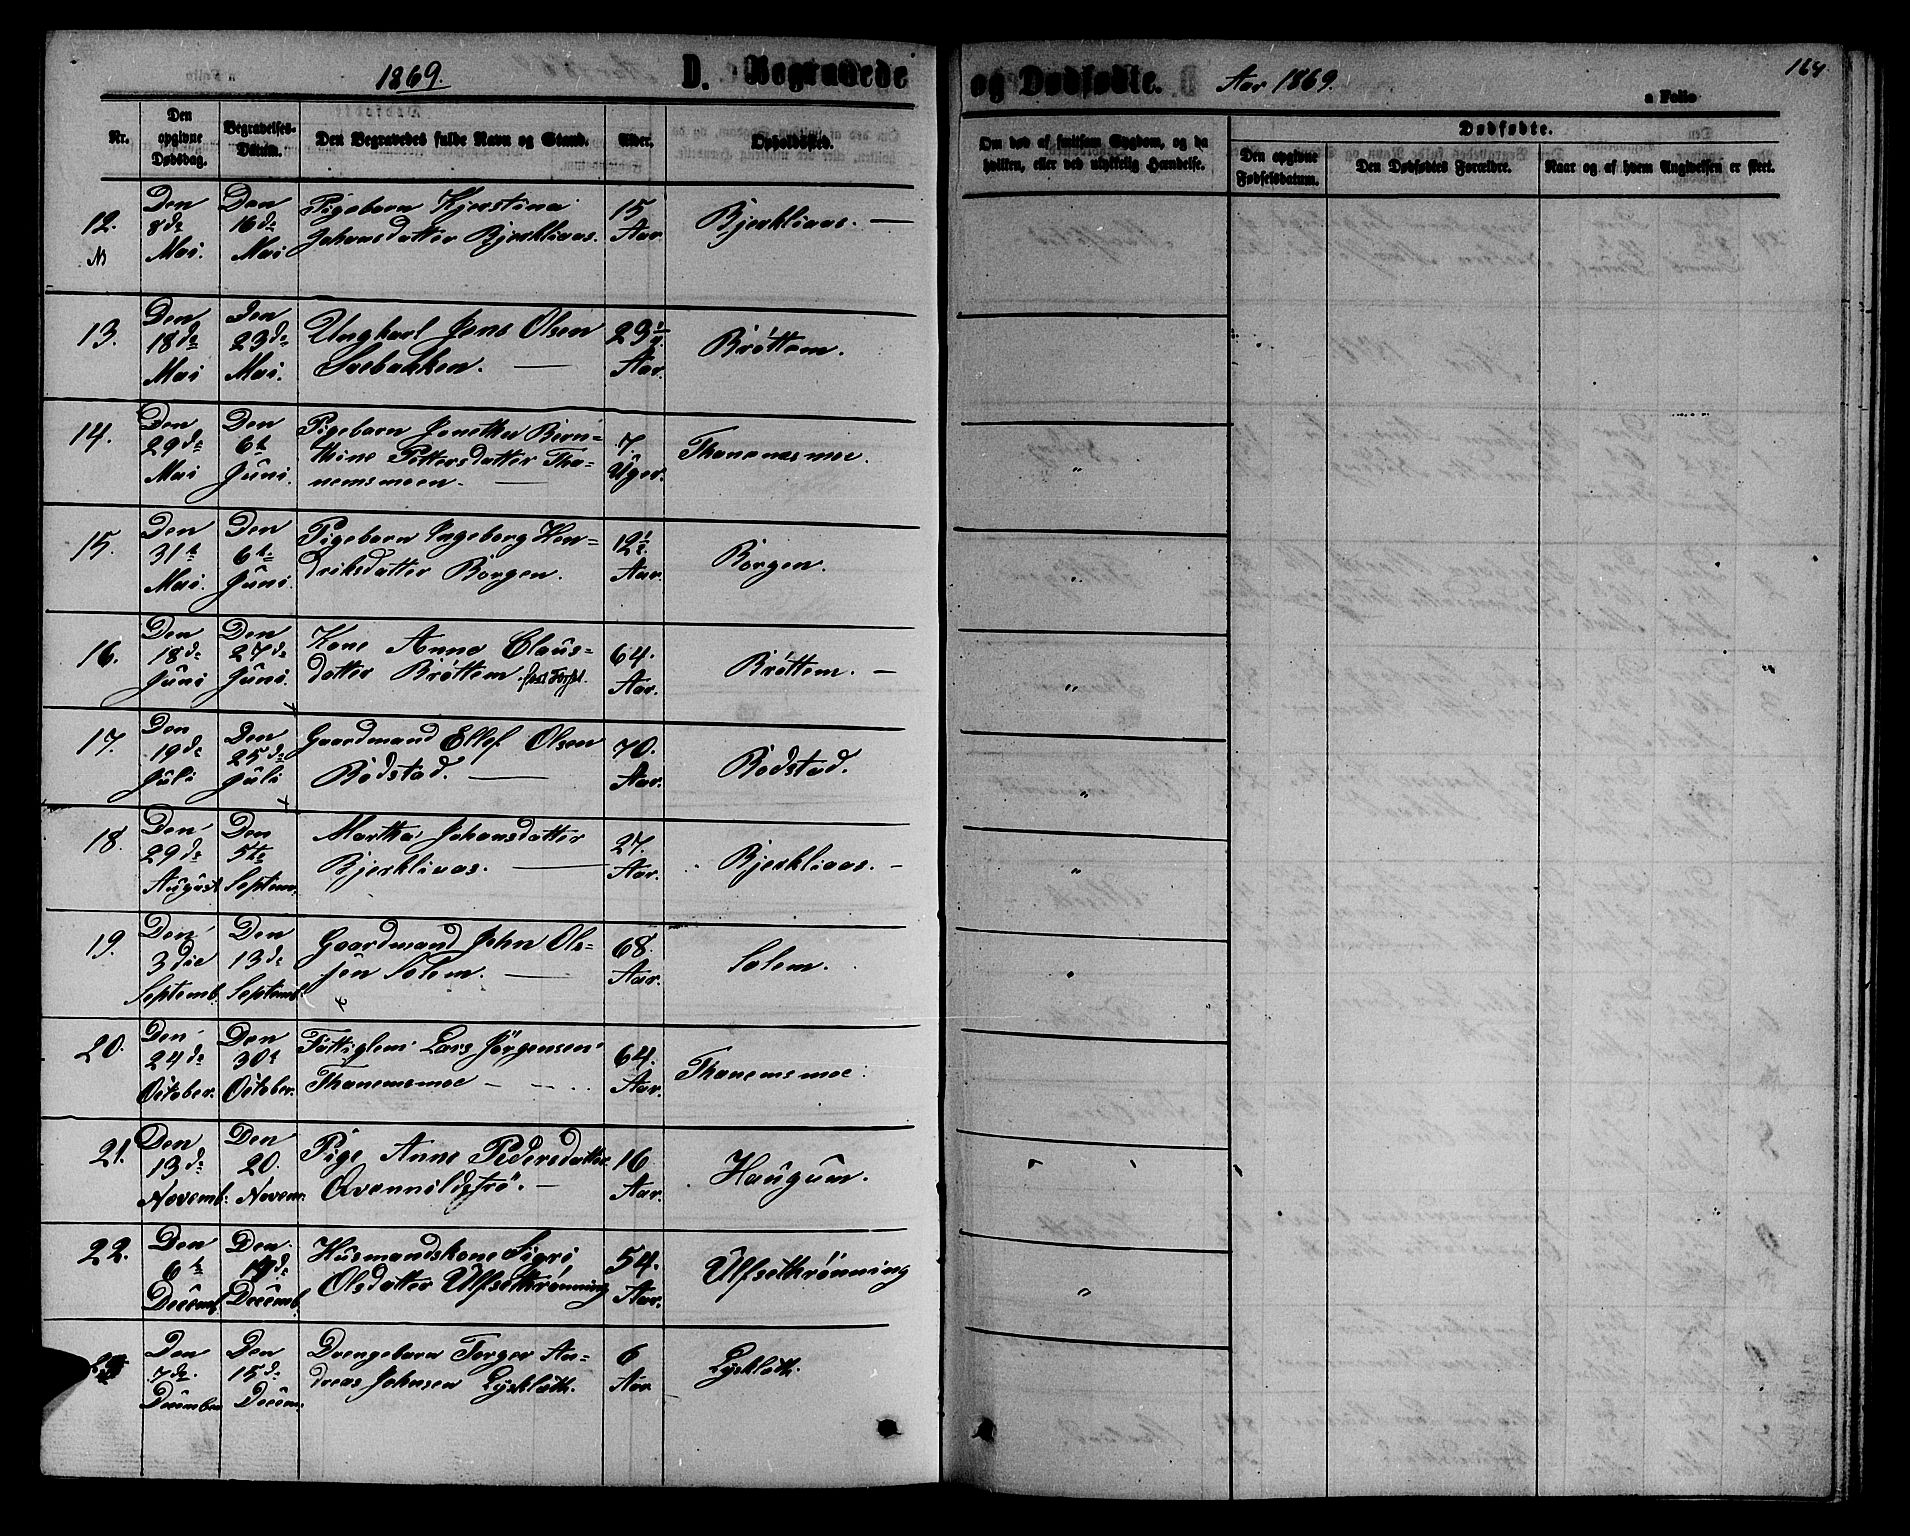 1869.
D. Begravede
og Dødfødte.
Aar 1869.
164.
a Folio
Nr.
Den opgivne Dødsdag.
Begravelses-Datum.
Den Begravedes fulde Navn og Stand.
Alder.
Opholdssted.
Om død af smitsom Sygdom, og da hvilken, eller ved ulykkelig Hændelse.
Dødfødte.
Den opgivne Fødselsdatum.
Den Dødfødtes Forældre.
Naar og af hvem Angivelsen er skeet.
12. Den 8de Mai. Den 16de Mai Pigebarn Kjerstina
Johansdatter Bjerkliaas. 15 Aar. Bjerkliaas.
13. Den 18de Mai Den 23de Mai. Ungkarl Jens Olsen
Saebakken. 23 Aar. Bröttem.
14. Den 29de Mai Den 6te Juni. Pigebarn Jonetta Bern-
thine Pettersdatter Tha-
nemsmoen. 7. Uger. Thanemsmoe.
15. Den 31te Mai. Den 6te Juni. Pigebarn Ingeborg Hen-
driksdatter Borgen. 12½ Aar. Borgen.
16. Den 18de Juni Den 27de Juni. Kone Anne Claus-
datter Bröttem 64. Aar. Bröttem.
17. Den 19de Juli Den 25de Juli Gaardmand Ellef Olsen
Rodstad. 70. Aar. Rodstad.
18. Den 29de August Den 5te Septemb. Martha Johansdatter
Bjerkliaas. 27. Aar. Bjerkliaas.
19. Den 3die Septemb. Den 13de Septemb. Gaardmand John Ol-
sen Solem. 68. Aar. Solem.
20. Den 24de October. Den 30te October. Fattiglem Lars Jörgensen
Thanemsmoe 64. Aar. Thanemsmoe.
21. Den 13de Novemb. Den 20. Novem. Pige Anne Pedersdatter
Qvennildströ. 16 Aar. Haugum.
22. Den 6te Decemb. Den Decemb. Husmandskone Sigri
Olsdatter Ulfsethrönning 54. Aar. Ulfsethrönning
Den 7de. December Den 15de Decem. Drengebarn Torger An-
dreas Johnsen Lysklæth. 6 Aar Lysklæth.